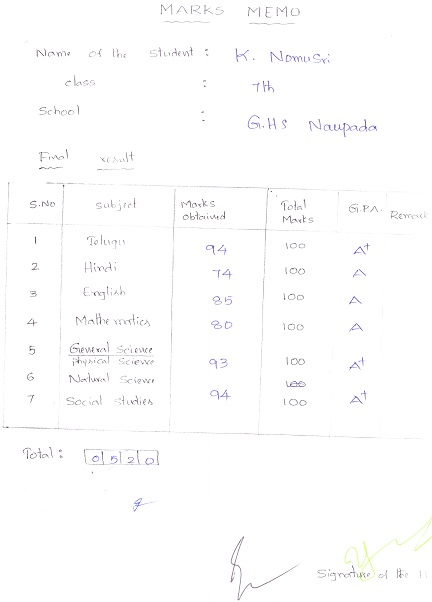 MARKS MEMO
Name of the Student : K. Nomusri
class : 7th
School : G.H.S Naupada
Final result
S.No Subject Marks obtained Total Marks G.P.A. Remark
1 Telugu 94 100 A+
2 Hindi 74 100 A
3 English 85 100 A
4 Mathematics 80 100 A
5 General Science
Physical Science 93 100 A+
6 Natural Science 100
7 Social Studies 94 100 A+
Total : 0520
Signature of the H